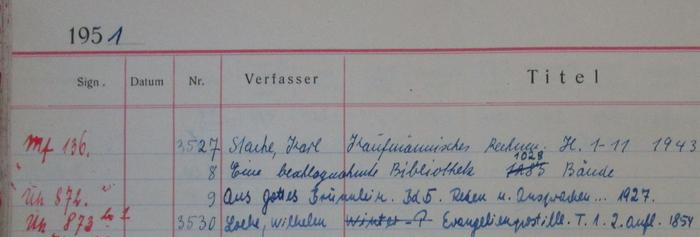 1951
Sign. Datum Nr. Verfasser Titel
Mf 136. 3527 Stache, Karl Kaufmännisches Rechnen. H. 1-11 1943
8 Eine beschlagnahmte Bibliothek 1028 Bände
Uh 872. 9 Aus Gottes Brünnlein. Bd 5. Reden u. Ansprachen... 1927.
Uh 873 3530 Loehe, Wilhelm Evangelienpostille. T. 1. 2. Aufl. 1854